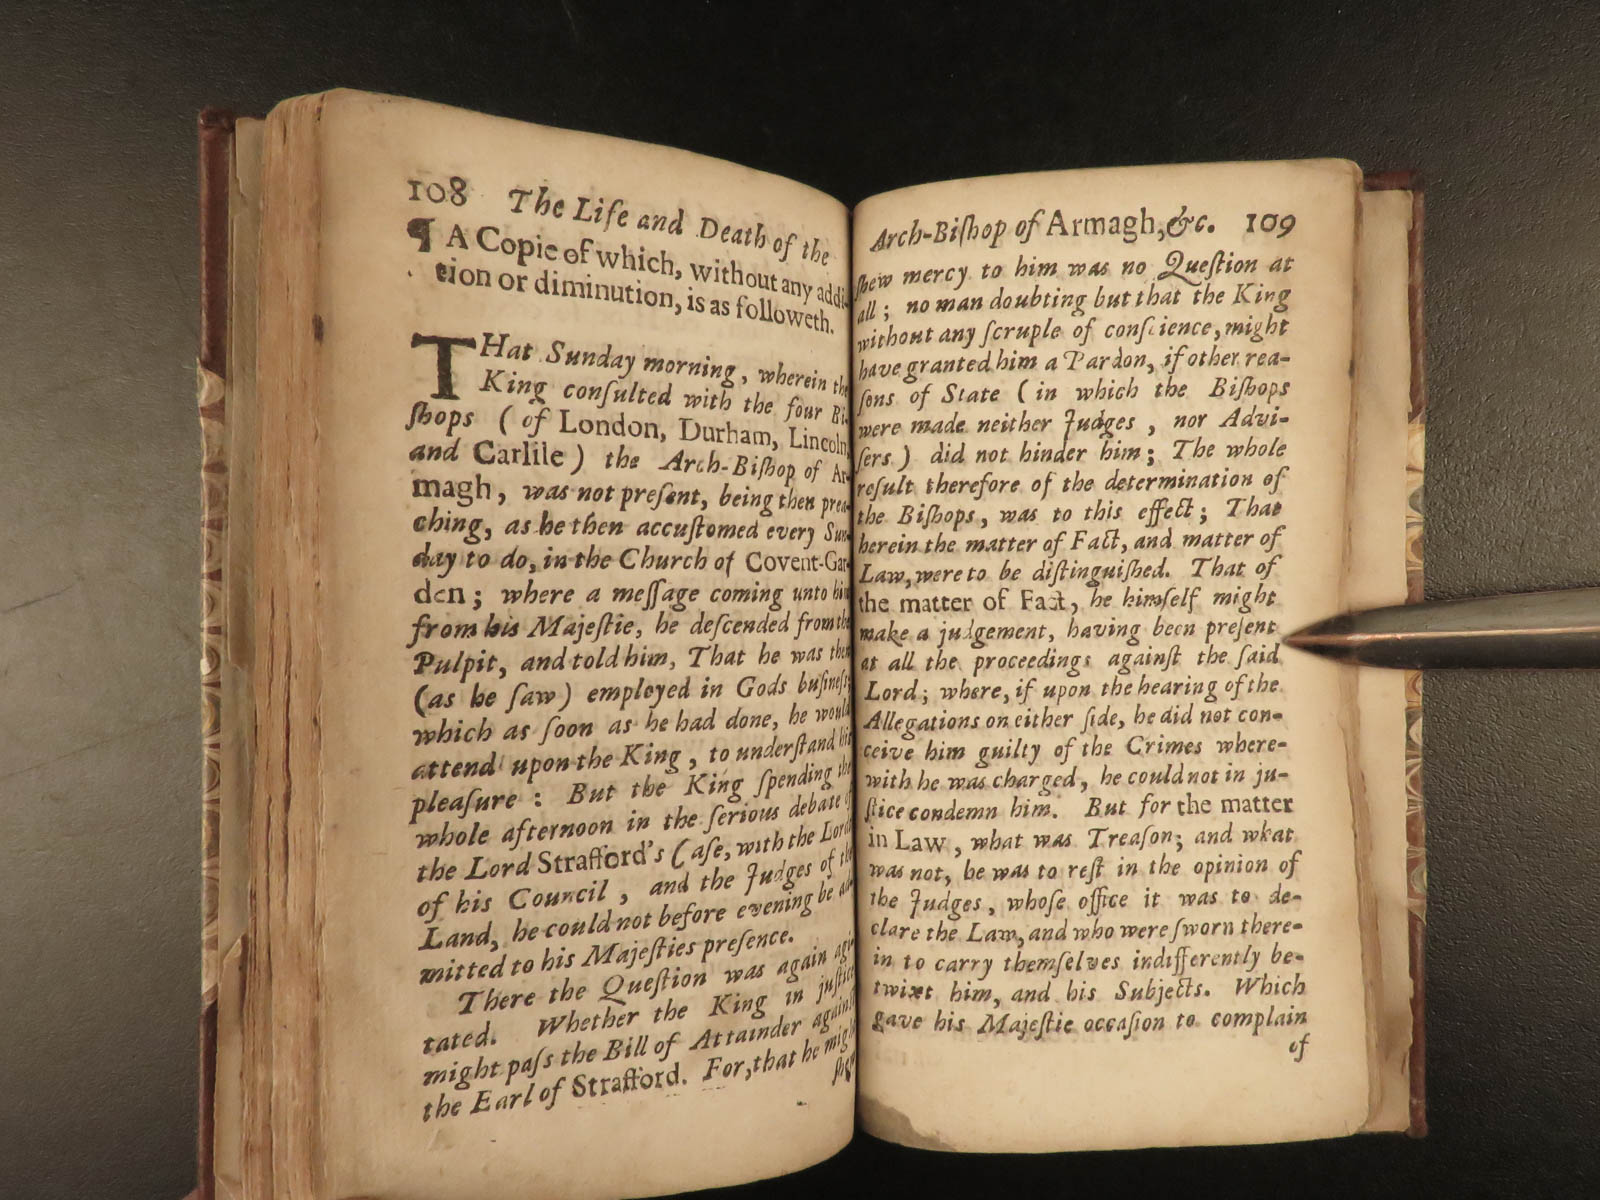 108 The Life and Death of the
¶ A Copie of which, without any addi-
tion or diminution, is as followeth.
THat Sunday morning, wherein the
King conſulted with the four Bi-
ſhops (of London, Durham, Lincoln,
and Carlile) the Arch-Biſhop of Ar-
magh, was not preſent, being then prea-
ching, as he then accuſtomed every Sun-
day to do, in the Church of Covent-Gar-
den; where a meſſage coming unto him
from his Majeſtie, he deſcended from the
Pulpit, and told him, That he was then
(as he ſaw) employed in Gods buſineſs,
which as ſoon as he had done, he would
attend upon the King, to underſtand his
pleaſure: But the King ſpending the
whole afternoon in the ſerious debate of
the Lord Strafford's Caſe, with the Lords
of his Council, and the Judges of the
Land, he could not before evening be ad-
mitted to his Majeſties preſence.
There the Queſtion was again agi-
tated. Whether the King in juſtice
might paſs the Bill of Attainder againſt
the Earl of Strafford. For, that he might
ſhew
Arch-Biſhop of Armagh, &c. 109
ſhew mercy to him was no Queſtion at
all; no man doubting but that the King
without any ſcruple of conſcience, might
have granted him a Pardon, if other rea-
ſons of State (in which the Biſhops
were made neither Judges, nor Advi-
ſers) did not hinder him; The whole
reſult therefore of the determination of
the Biſhops, was to this effect; That
herein the matter of Fact, and matter of
Law, were to be diſtinguiſhed. That of
the matter of Fact, he himſelf might
make a judgement, having been preſent
at all the proceedings againſt the ſaid
Lord; where, if upon the hearing of the
Allegations on either ſide, he did not con-
ceive him guilty of the Crimes where-
with he was charged, he could not in ju-
ſtice condemn him. But for the matter
in Law, what was Treaſon; and what
was not, he was to reſt in the opinion of
the Judges, whoſe office it was to de-
clare the Law, and who were ſworn there-
in to carry themſelves indifferently be-
twixt him, and his Subjects. Which
gave his Majeſtie occaſion to complain
of